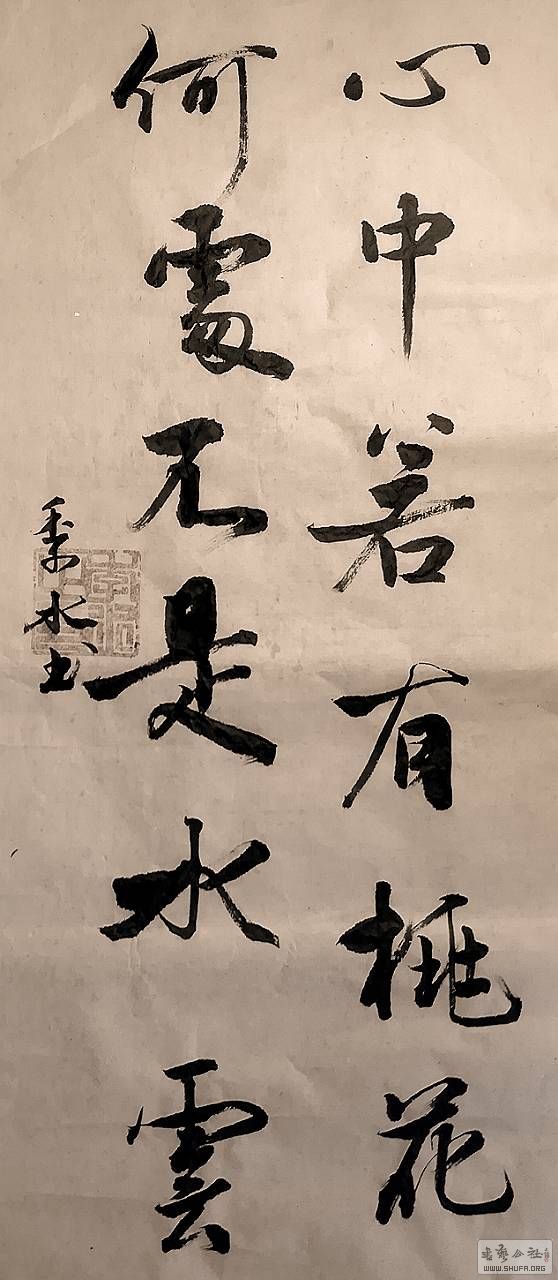 心中若有桃花
何處不是水雲
水书
WWW.SHUFA.ORG